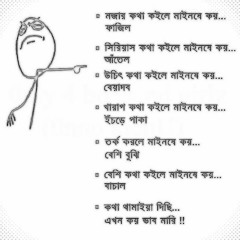 মজার কথা কইলে মাইনষে কয়...
ফাজিল
সিরিয়াস কথা কইলে মাইনষে কয়...
আঁতেল
উচিৎ কথা কইলে মাইনষে কয়...
বেয়াদব
খারাপ কথা কইলে মাইনষে কয়...
ইঁচড়ে পাকা
তর্ক করলে মাইনষে কয়...
বেশি বুঝি
বেশি কথা কইলে মাইনষে কয়...
বাচাল
কথা থামাইয়া দিছি...
এখন কয় ভাব মারি !!